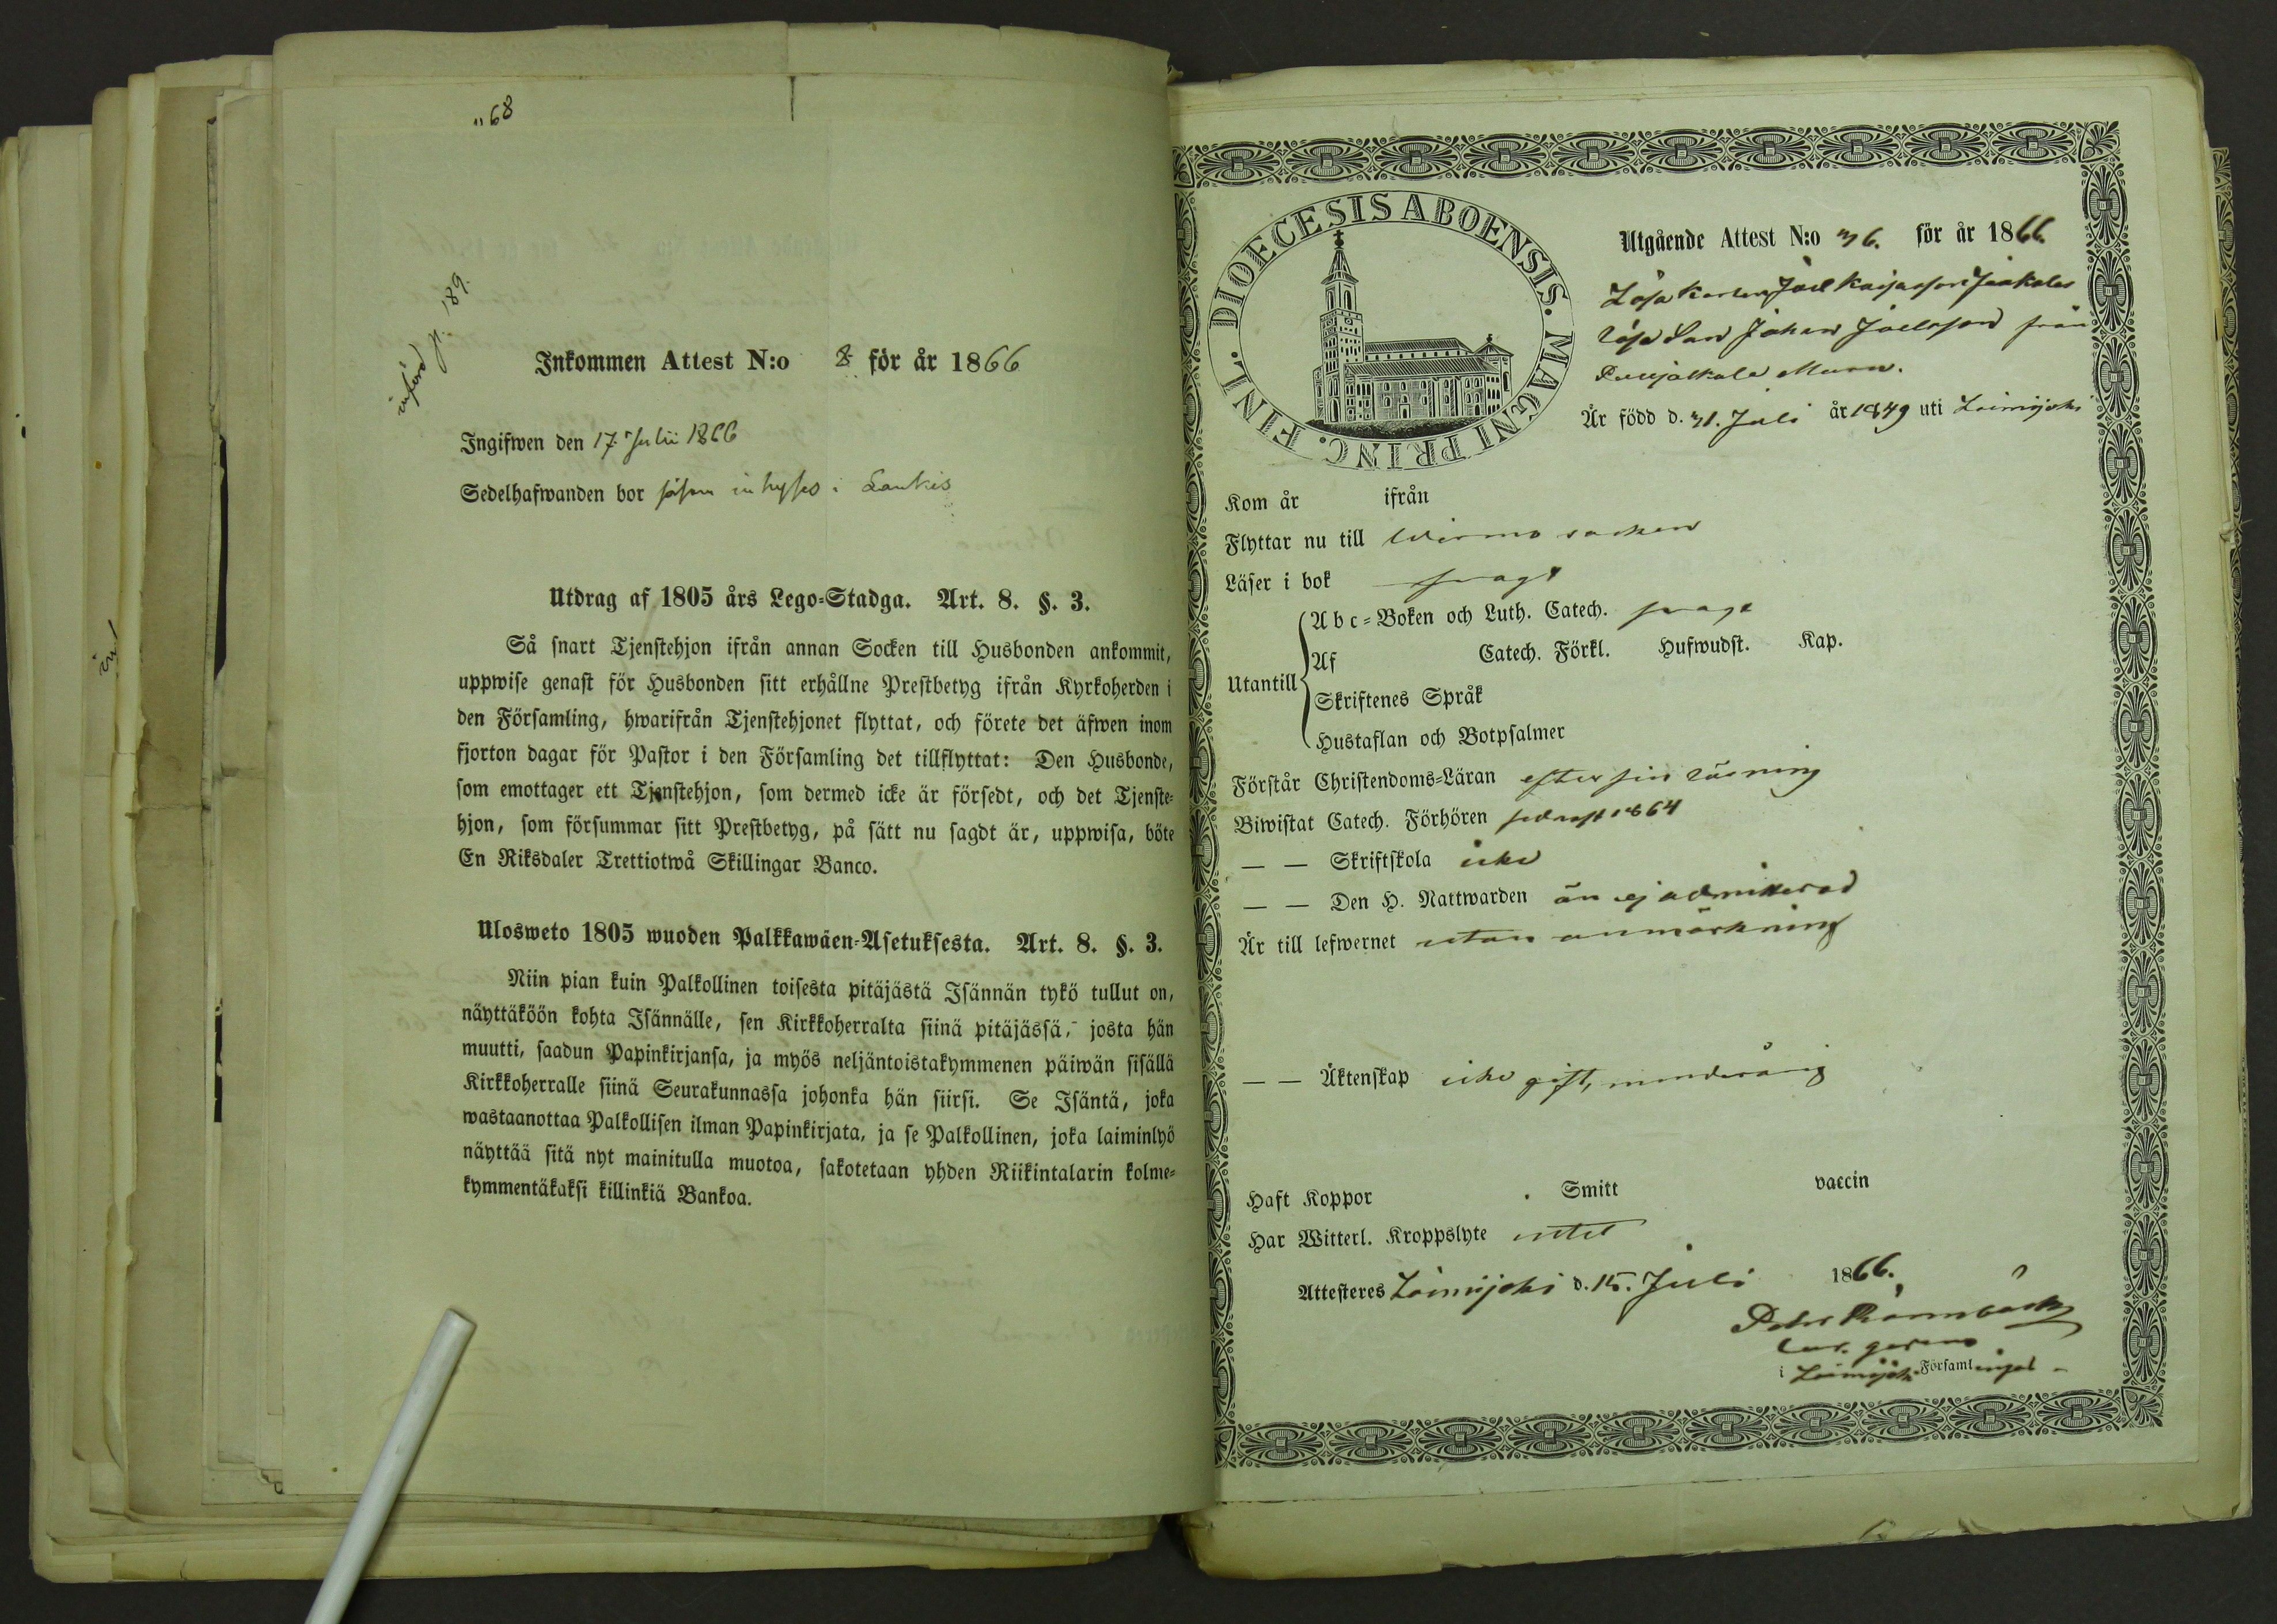 "68
införd p. 189.
Inkommen Attest N:o 8 för år 1866
Ingifwen den 17 Julii 1866
Sedelhafwanden bor såsom inhyses i Lankis
Utdrag af 1805 års Lego-Stadga. Art. 8. §. 3.
Så snart Tjenstehjon ifrån annan Socken till Husbonden ankommit,
uppwise genast för Husbonden sitt erhållne Prestbetyg ifrån Kyrkoherden i
den Församling, hwarifrån Tjenstehjonet flyttat, och förete det äfwen inom
fjorton dagar för Pastor i den Församling det tillflyttat: Den Husbonde,
som emottager ett Tjenstehjon, som dermed icke är försedt, och det Tjenste-
hjon, som försummar sitt Prestbetyg, på sätt nu sagdt är, uppwisa, böte
En Riksdaler Trettiotwå Skillingar Banco.
Ulosweto 1805 wuoden Palkkawäen-Asetuksesta. Art. 8. §. 3.
Niin pian kuin Palkollinen toisesta pitäjästä Isännän tykö tullut on,
näyttäköön kohta Isännälle, sen Kirkkoherralta siinä pitäjässä, josta hän
muutti, saadun Papinkirjansa, ja myös neljäntoistakymmenen päiwän sisällä
Kirkkoherralle siinä Seurakunnassa johonka hän siirsi. Se Isäntä, joka
wastaanottaa Palkollisen ilman Papinkirjata, ja se Palkollinen, joka laiminlyö
näyttää sitä nyt mainitulla muotoa, sakotetaan yhden Riikintalarin kolme-
kymmentäkaksi killinkiä Bankoa.
DIOECESIS ABOENSIS. MAGNI PRINC. FINL.
Utgående Attest N:o 76. för år 1866.
Lösa Karlen Joel
lösa Son Johan Joelsson från
Är född d. 31. Juli år 1849 uti Loimijoki
Kom år ifrån
Flyttar nu till Wirmo socken
Läser i bok svagt
Abc-Boken och Luth. Catech. svagt
Af Catech. Förkl. Hufwudst. Kap.
Utantill
Skriftenes Språk
Hustaflan och Botpsalmer
Förstår Christendoms-Läran efter sin läsning
Biwistat Catech. Förhören sednast 1864
— — Skriftskola icke
— — Den H. Nattwarden än ej admitterad
Är till lefwernet utan anmärkning
— — Äktenskap icke gift, minderårig
Haft Koppor Smitt vaccin
Har Witterl. Kroppslyte intet
Attesteres Loimijoki d. 15. Juli 1866.
Cur. gerens
i Loimijoki Församlingal